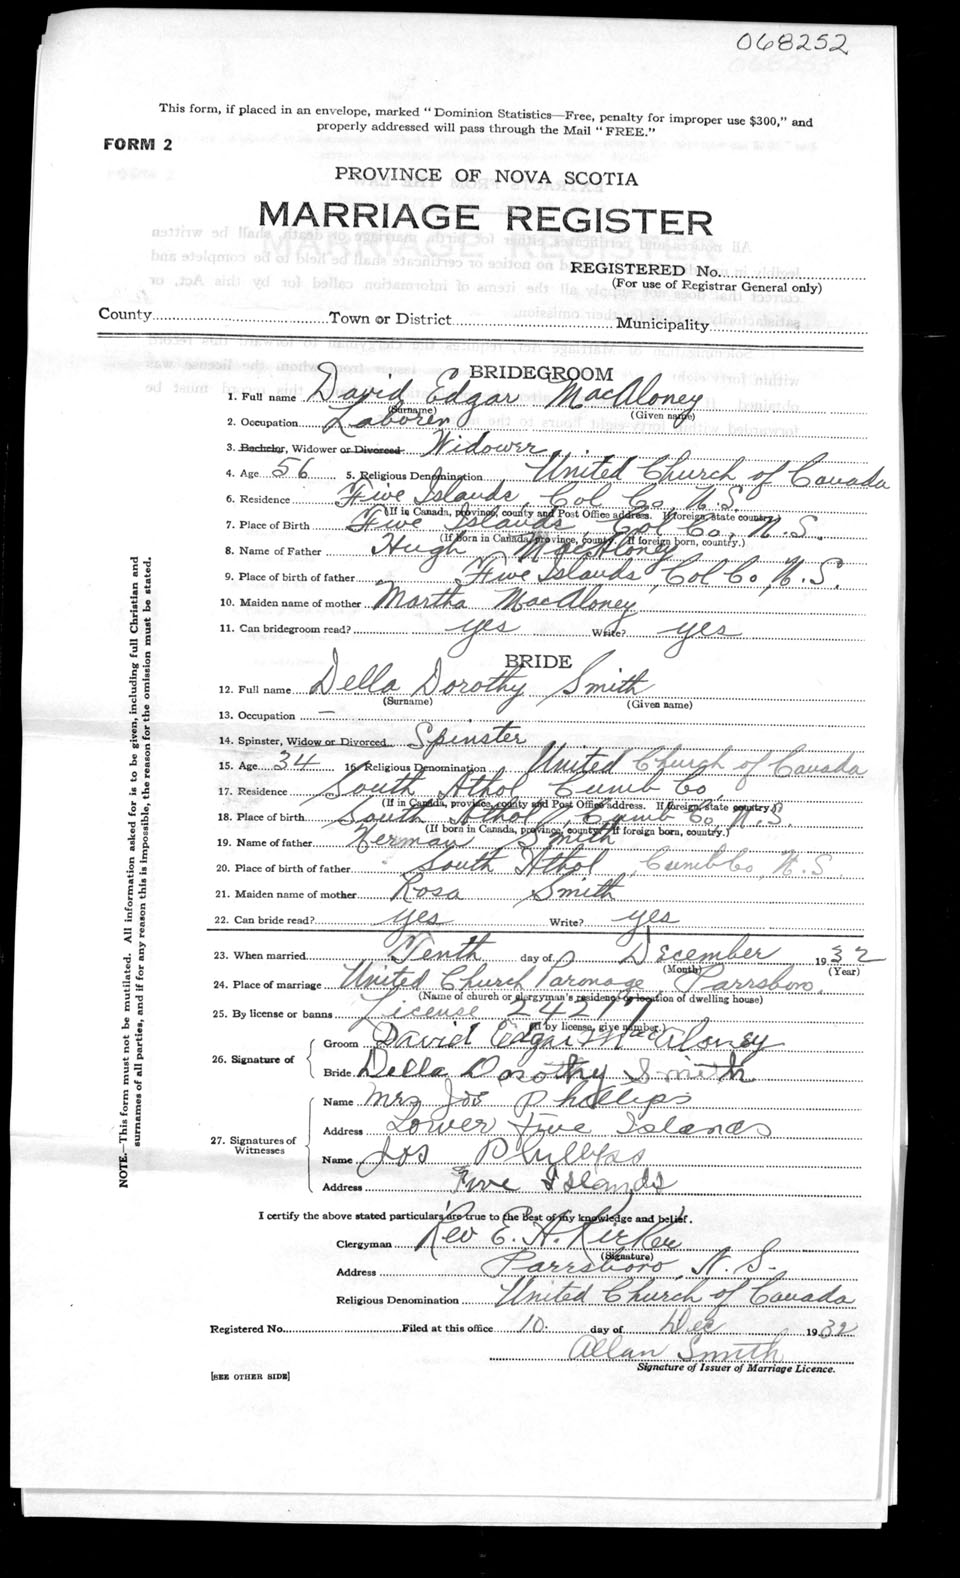 068252
This form, if placed in an envelope, marked "Dominion Statistics—Free, penalty for improper use $300," and
properly addressed will pass through the Mail "FREE."
FORM 2
PROVINCE OF NOVA SCOTIA
MARRIAGE REGISTER
REGISTERED No.
(For use of Registrar General only)
County Town or District Municipality
BRIDEGROOM
1. Full name David Edgar MacAloney
(Surname) (Given name)
2. Occupation Laborer
3. Bachelor, Widower or Divorced Widower
4. Age 56 5. Religious Denomination United Church of Canada
6. Residence Five Islands, Col Co, N.S.
(If in Canada, province, county and Post Office address. If foreign, state country.)
7. Place of Birth Five Islands Col Co, N.S.
(If born in Canada, province, county. If foreign born, country.)
8. Name of Father Hugh MacAloney
9. Place of birth of father Five Islands, Col Co, N.S.
10. Maiden name of mother Martha MacAloney
11. Can bridegroom read? yes Write? yes
BRIDE
12. Full name Della Dorothy Smith
(Surname) (Given name)
13. Occupation —
14. Spinster, Widow or Divorced Spinster
15. Age 34 16. Religious Denomination United Church of Canada
17. Residence South Athol Cumb Co,
(If in Canada, province, county and Post Office address. If foreign, state country.)
18. Place of birth South Athol, Cumb Co, N.S.
(If born in Canada, province, county. If foreign born, country.)
19. Name of father Herman Smith
20. Place of birth of father South Athol, Cumb Co, N.S
21. Maiden name of mother Rosa Smith
22. Can bride read? yes Write? yes
23. When married Tenth day of December 1932
(Month) (Year)
24. Place of marriage United Church Paronage, Parrsboro.
(Name of church or clergyman's residence or location of dwelling house)
25. By license or banns License 24217
(If by license, give number.)
26. Signature of
Groom David Edgar MacAloney
Bride Della Dorothy Smith
27. Signatures of Witnesses
Name Mrs Jos Phillips
Address Lower Five Islands
Name Jos Phillips
Address Five Islands
I certify the above stated particulars are true to the best of my knowledge and belief.
Clergyman Rev E. H. Kirker
(Signature)
Address Parrsboro, N.S.
Religious Denomination United Church of Canada
Registered No. Filed at this office 10. day of Dec 1932
Allan Smith
Signature of Issuer of Marriage Licence.
[SEE OTHER SIDE]
NOTE.—This form must not be mutilated. All information asked for is to be given, including full Christian and
surnames of all parties, and if for any reason this is impossible, the reason for the omission must be stated.